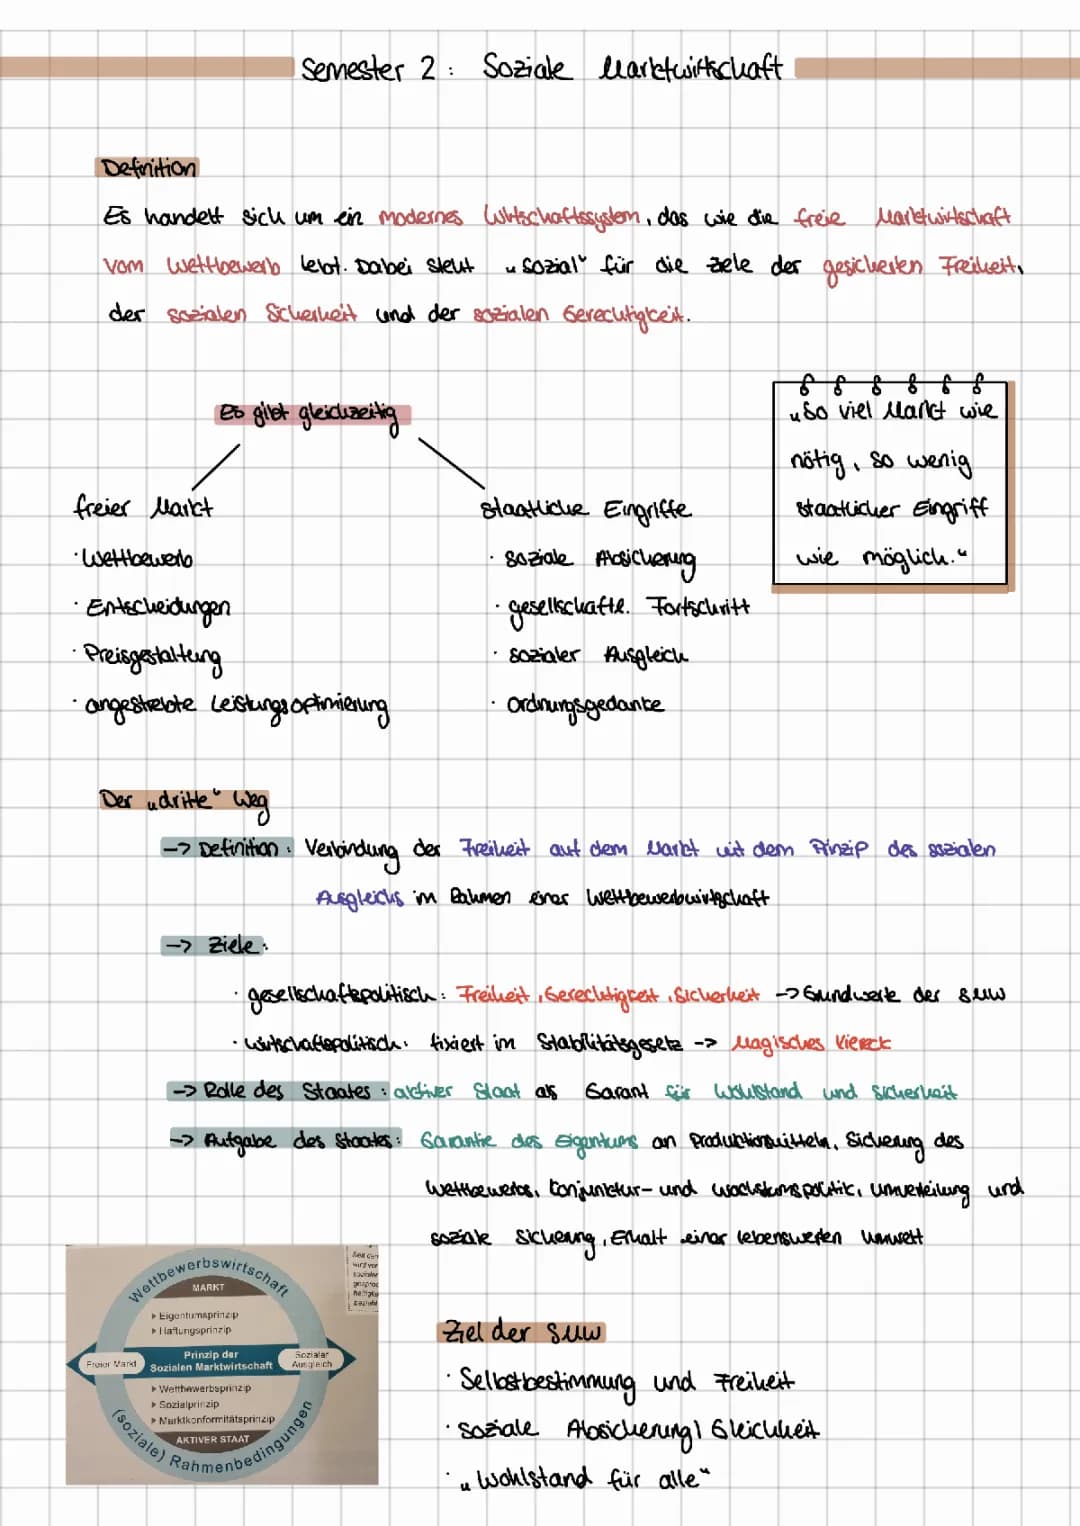 Semester 2: Soziale Marktwirtschaft
Definition
Es handelt sich um ein modernes Wirtschaftssystem, das wie die freie Marktwirtschaft
vom Wettbewerb lebt. Dabei steht „sozial“ für die Ziele der gesicherten Freiheit,
der sozialen Sicherheit und der sozialen Gerechtigkeit.
Es gibt gleichzeitig
freier Markt
· Wettbewerb
· Entscheidungen
· Preisgestaltung
· angestrebte Leistungsoptimierung
staatliche Eingriffe
· soziale Absicherung
· gesellschaftl. Fortschritt
· sozialer Ausgleich
· Ordnungsgedanke
„So viel Markt wie
nötig, so wenig
staatlicher Eingriff
wie möglich.“
Der „dritte“ Weg
-> Definition: Verbindung der Freiheit auf dem Markt mit dem Prinzip des sozialen
Ausgleichs im Rahmen einer Wettbewerbwirtschaft
-> Ziele:
· gesellschaftspolitisch: Freiheit, Gerechtigkeit, Sicherheit -> Grundwerte der SMW
· wirtschaftspolitisch: fixiert im Stabilitätsgesetz -> Magisches Viereck
-> Rolle des Staates: aktiver Staat als Garant für Wohlstand und Sicherheit
-> Aufgabe des Staates: Garantie des Eigentums an Productionsmitteln, Sicherung des
Wettbewerbs, Konjunktur- und Wachstumspolitik, Umverteilung und
soziale Sicherung, Erhalt einer lebenswerten Umwelt
Wettbewerbswirtschaft
MARKT
Eigentumsprinzip
Haftungsprinzip
Freier Markt
Prinzip der
Sozialen Marktwirtschaft
Sozialer
Ausgleich
Wettbewerbsprinzip
Sozialprinzip
Marktkonformitätsprinzip
AKTIVER STAAT
(soziale) Rahmenbedingungen
Ziel der SMW
· Selbstbestimmung und Freiheit
· soziale Absicherung / Gleichheit
· „Wohlstand für alle“